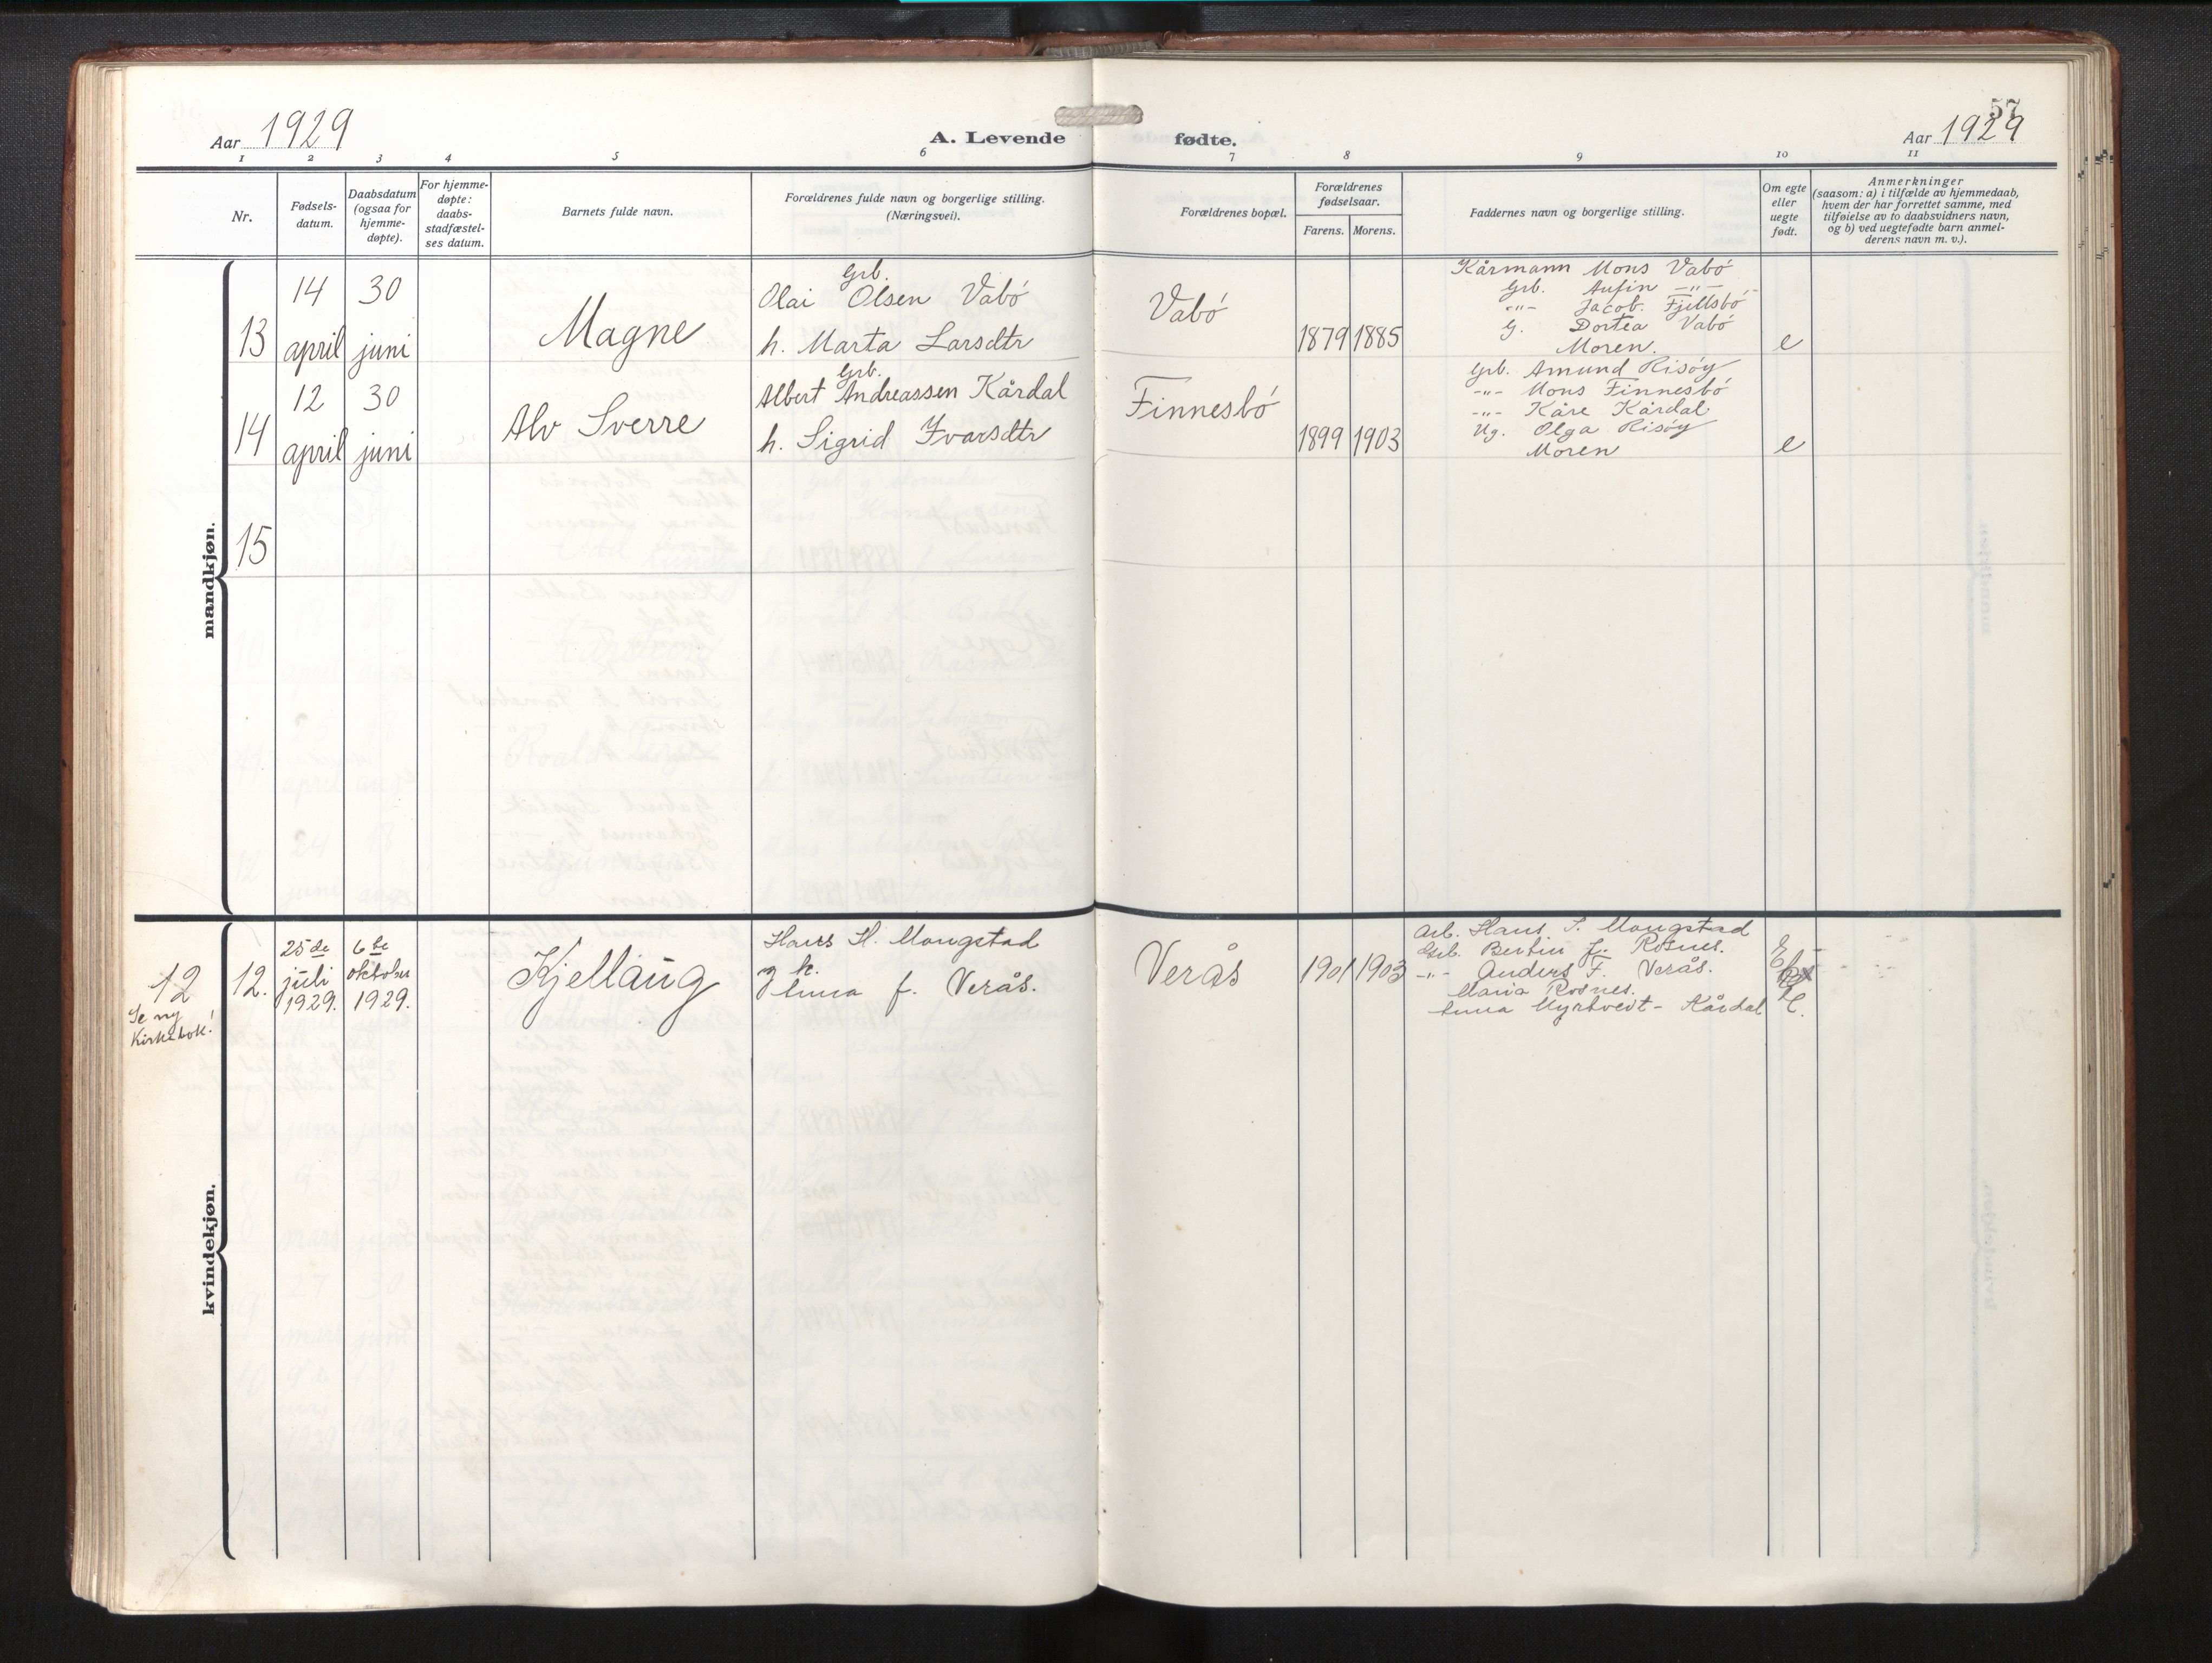 57
Aar 1929
A. Levende fødte.
Aar 1929
1 2 3 4 5 6 7 8 9 10 11
Nr.
Fødsels-
datum.
Daabsdatum
(ogsaa for
hjemme-
døpte).
For hjemme-
døpte:
daabs-
stadfæstel-
ses datum.
Barnets fulde navn.
Forældrenes fulde navn og borgerlige stilling.
(Næringsvei).
Forældrenes bopæl.
Forældrenes
fødselsaar.
Farens. Morens.
Faddernes navn og borgerlige stilling.
Om egte
eller
uegte
født.
Anmerkninger
(saasom: a) i tilfælde av hjemmedaab,
hvem der har forrettet samme, med
tilføielse av to daabsvidners navn,
og b) ved uegtefødte barn anmel-
derens navn m. v.).
mandkjøn.
13
14
april
30
juni
Magne
Grb.
Olai Olsen Vabó
h. Marta Larsdtr
Vabó
1879 1885
Kårmann Mons Vabó
Grb. Aufin -"-
-"- Jacob Fjellsbó
G. Dortea Vabó
Moren.
e
14
12
april
30
juni
Alv Sverre
Grb.
Albert Andreassen Kårdal
h. Sigrid Ivarsdtr
Finnesbó
1899 1903
Grb. Amund Risóy
-"- Mons Finnesbó
-"- Kåre Kårdal
Ug. Olga Risóy
Moren
e
15
kvindekjøn.
12
Se ny
Kirkebok!
12.
25de
juli
1929.
6te
oktober
1929.
Kjellaug
Hans H. Mongstad
h.
Anna f. Verås.
Verås
1901 1903
Arb. Hans S. Mongstad
Grb. Bertin J. Rosnes.
-"- Anders F. Verås.
Maria Rosnes.
Anna Myrtvedt - Kårdal